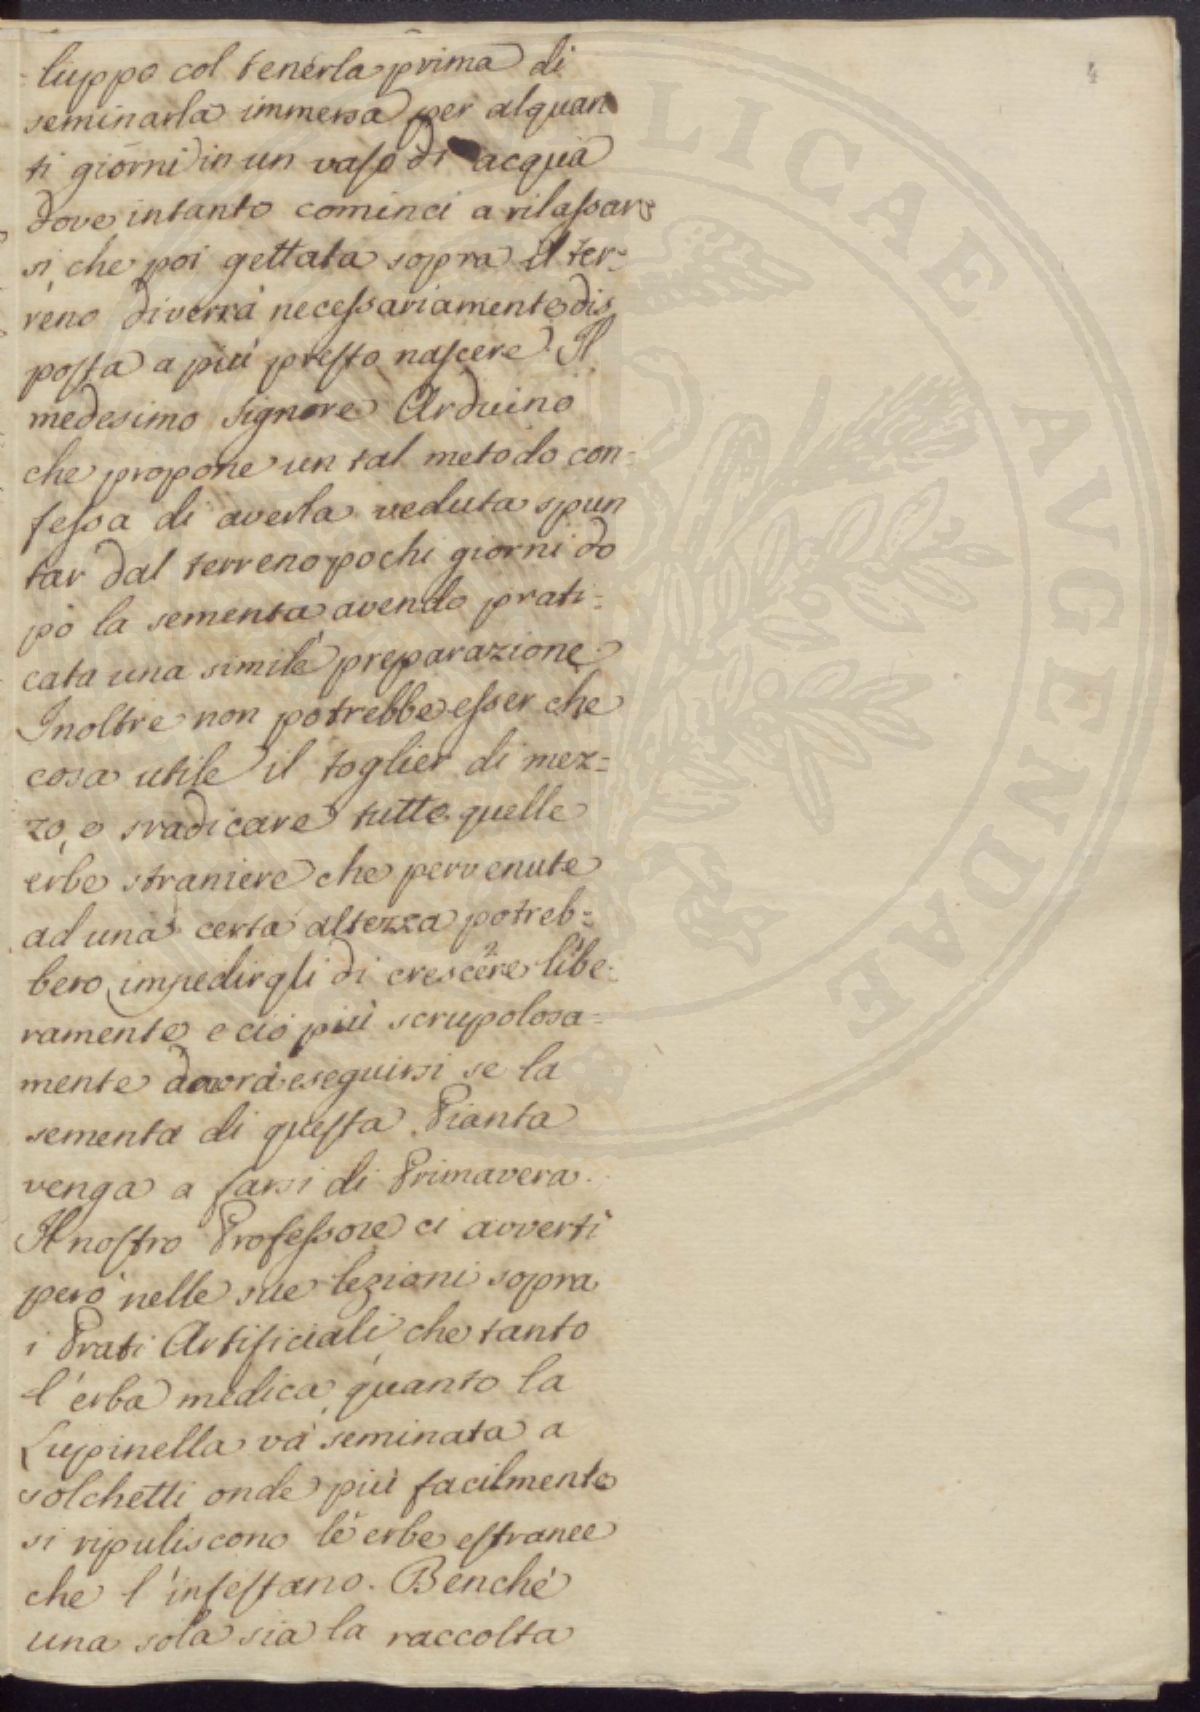 4
luppo col tenerla prima di
seminarla immersa per alquan
ti giorni in un vaso di acqua
dove intanto cominci a rilassar
si che poi gettata sopra il ter=
reno diverrà necessariamente dis
posta a più presto nascere. Il
medesimo Signore Arduino
che propone un tal metodo con=
fessa di averla veduta spun
tar dal terreno pochi giorni do
pò la sementa avendo prati=
cata una simile preparazione.
Inoltre non potrebbe esser che
cosa utile il toglier di mez=
zo, e sradicare tutte quelle
erbe straniere che pervenute
ad una certa altezza potreb=
bero impedirgli di crescere libe=
ramente, e ciò più scrupolosa=
mente dovrà eseguirsi se la
sementa di questa Pianta
venga a farsi di Primavera.
Il nostro Professore ci avvertì
però nelle sue lezioni sopra
i Prati Artificiali, che tanto
l'erba medica, quanto la
Lupinella và seminata a
solchetti onde più facilmente
si ripuliscono le erbe estranee
che l'infestano. Benchè
una sola sia la raccolta
LICAE AVGENDAE